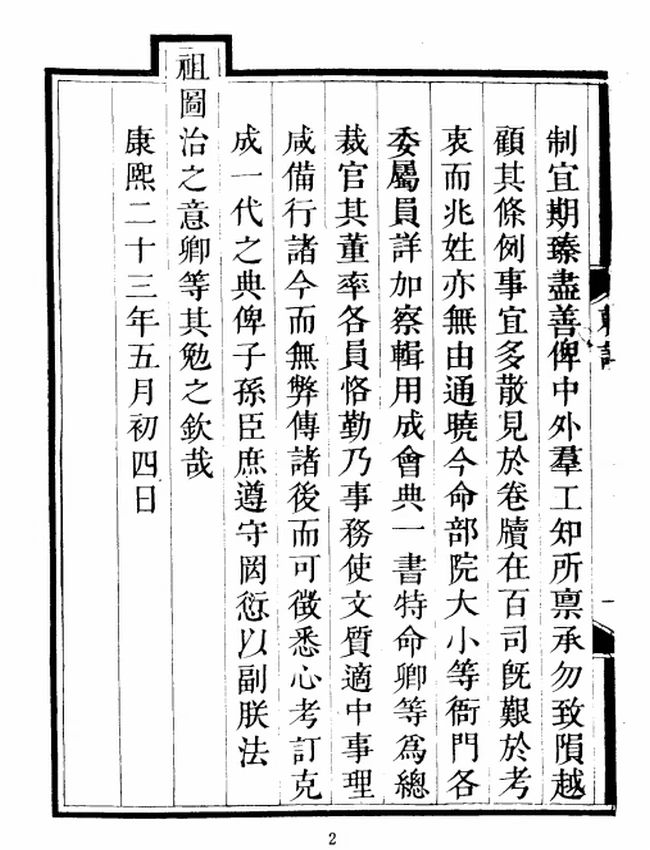 制宜期臻盡善俾中外羣工知所禀承勿致隕越
顧其條例事宜多散見於卷牘在百司旣艱於考
衷而兆姓亦無由通曉今命部院大小等衙門各
委屬員詳加察輯用成會典一書特命卿等爲總
裁官其董率各員恪勤乃事務使文質適中事理
咸備行諸今而無弊傳諸後而可徵悉心考訂克
成一代之典俾子孫臣庶遵守罔愆以副朕法
祖圖治之意卿等其勉之欽哉
康熙二十三年五月初四日
2